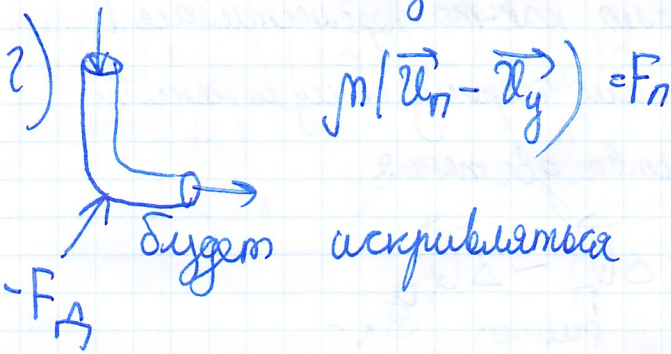 г)
μ(𝑢⃗п - 𝑢⃗у) = Fп
будет искривляться
-Fд